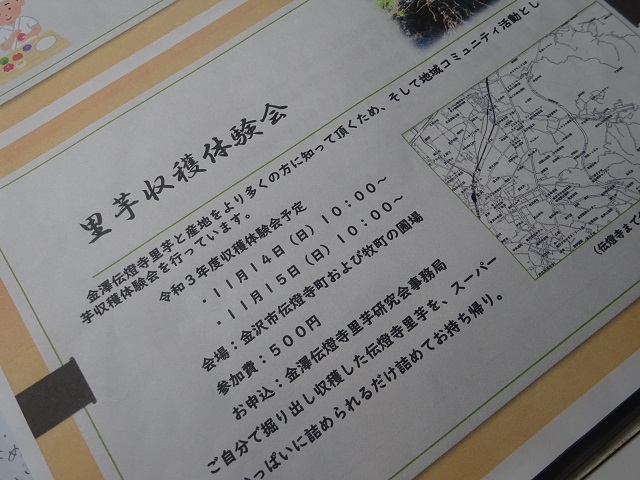 里芋収穫体験会
金澤伝燈寺里芋と産地をより多くの方に知って頂くため、そして地域コミュニティ活動とし
芋収穫体験会を行っています。
令和３年度収穫体験会予定
・１１月１４日（日）１０：００～
・１１月１５日（日）１０：００～
会場：金沢市伝燈寺町および牧町の圃場
参加費：５００円
お申込：金澤伝燈寺里芋研究会事務局
ご自分で掘り出し収穫した伝燈寺里芋を、スーパー
いっぱいに詰められるだけ詰めてお持ち帰り。
（伝燈寺まで